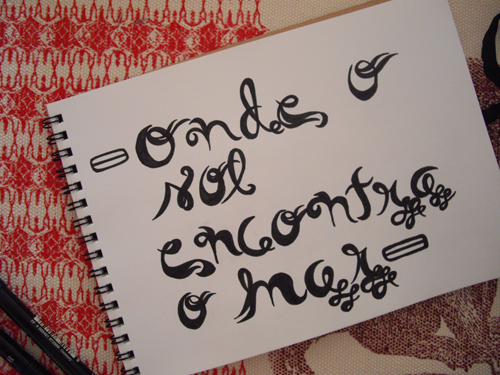 onde o
sol
encontra
o mar